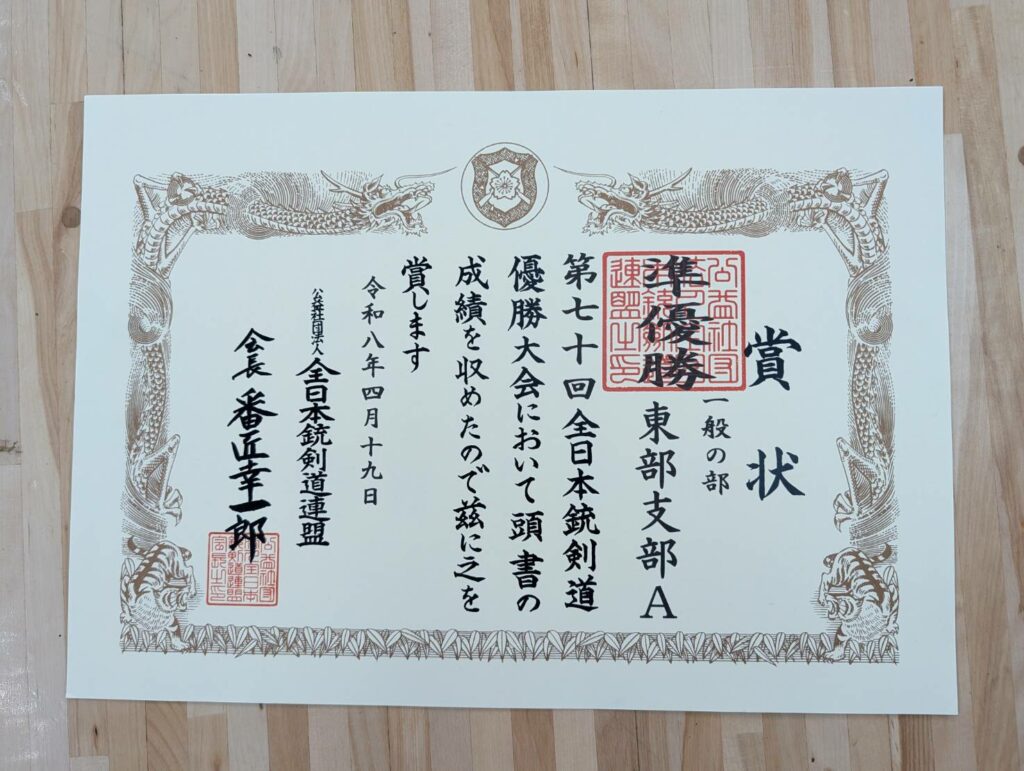 賞状
一般の部
準優勝 東部支部A
第七十回全日本銃剣道
優勝大会において頭書の
成績を収めたので茲に之を
賞します
令和八年四月十九日
公益社団法人 全日本銃剣道連盟
会長 番匠幸一郎